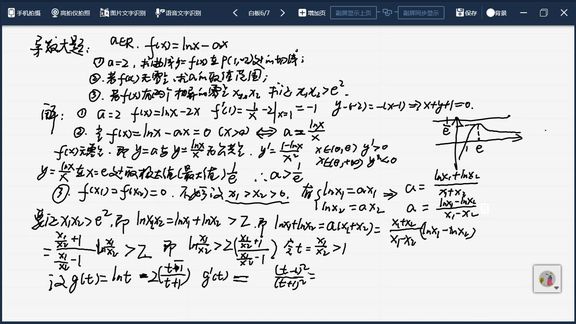 手机拍摄 高拍仪拍照 图片文字识别 语音文字识别 白板6/7 增加页 副屏显示上页 副屏同步显示 保存 背景
导数大题: a∈R. f(x)=lnx-ax
① a=2, 求曲线y=f(x)在P(1,-2)处的切线;
②.若f(x)无零点,求a的取值范围;
③.若f(x)有两个相异的零点x₁,x₂ 求证x₁x₂>e².
解: ① a=2 f(x)=lnx-2x f'(1)=1/x-2|x=1=-1 y-(-2)=-(x-1)⇒x+y+1=0.
②. 令f(x)=lnx-ax=0 (x>0) ⟺ a=lnx/x
f(x)无零点. 即y=a与y=lnx/x无公共点. y'=(1-lnx)/x² x∈(0,e) y'>0
x∈(e,+∞) y'<0
y=lnx/x在x=e处取极大值(最大值)1/e ∴a>1/e
1/e
e
③. f(x₁)=f(x₂)=0. 不妨设x₁>x₂>0. 有{lnx₁=ax₁ lnx₂=ax₂ ⇒ a=(lnx₁+lnx₂)/(x₁+x₂)
a=(lnx₁-lnx₂)/(x₁-x₂)
要证x₁x₂>e², 即lnx₁x₂=lnx₁+lnx₂>2, 即lnx₁+lnx₂=a(x₁+x₂)=(x₁+x₂)/(x₁-x₂)(lnx₁-lnx₂)
=(x₁/x₂+1)/(x₁/x₂-1)ln x₁/x₂>2 即 ln x₁/x₂>2(x₁/x₂-1)/(x₁/x₂+1) 令t=x₁/x₂>1
记g(t)=lnt-2(t-1)/(t+1) g'(t)= (t-1)²/(t+1)²=